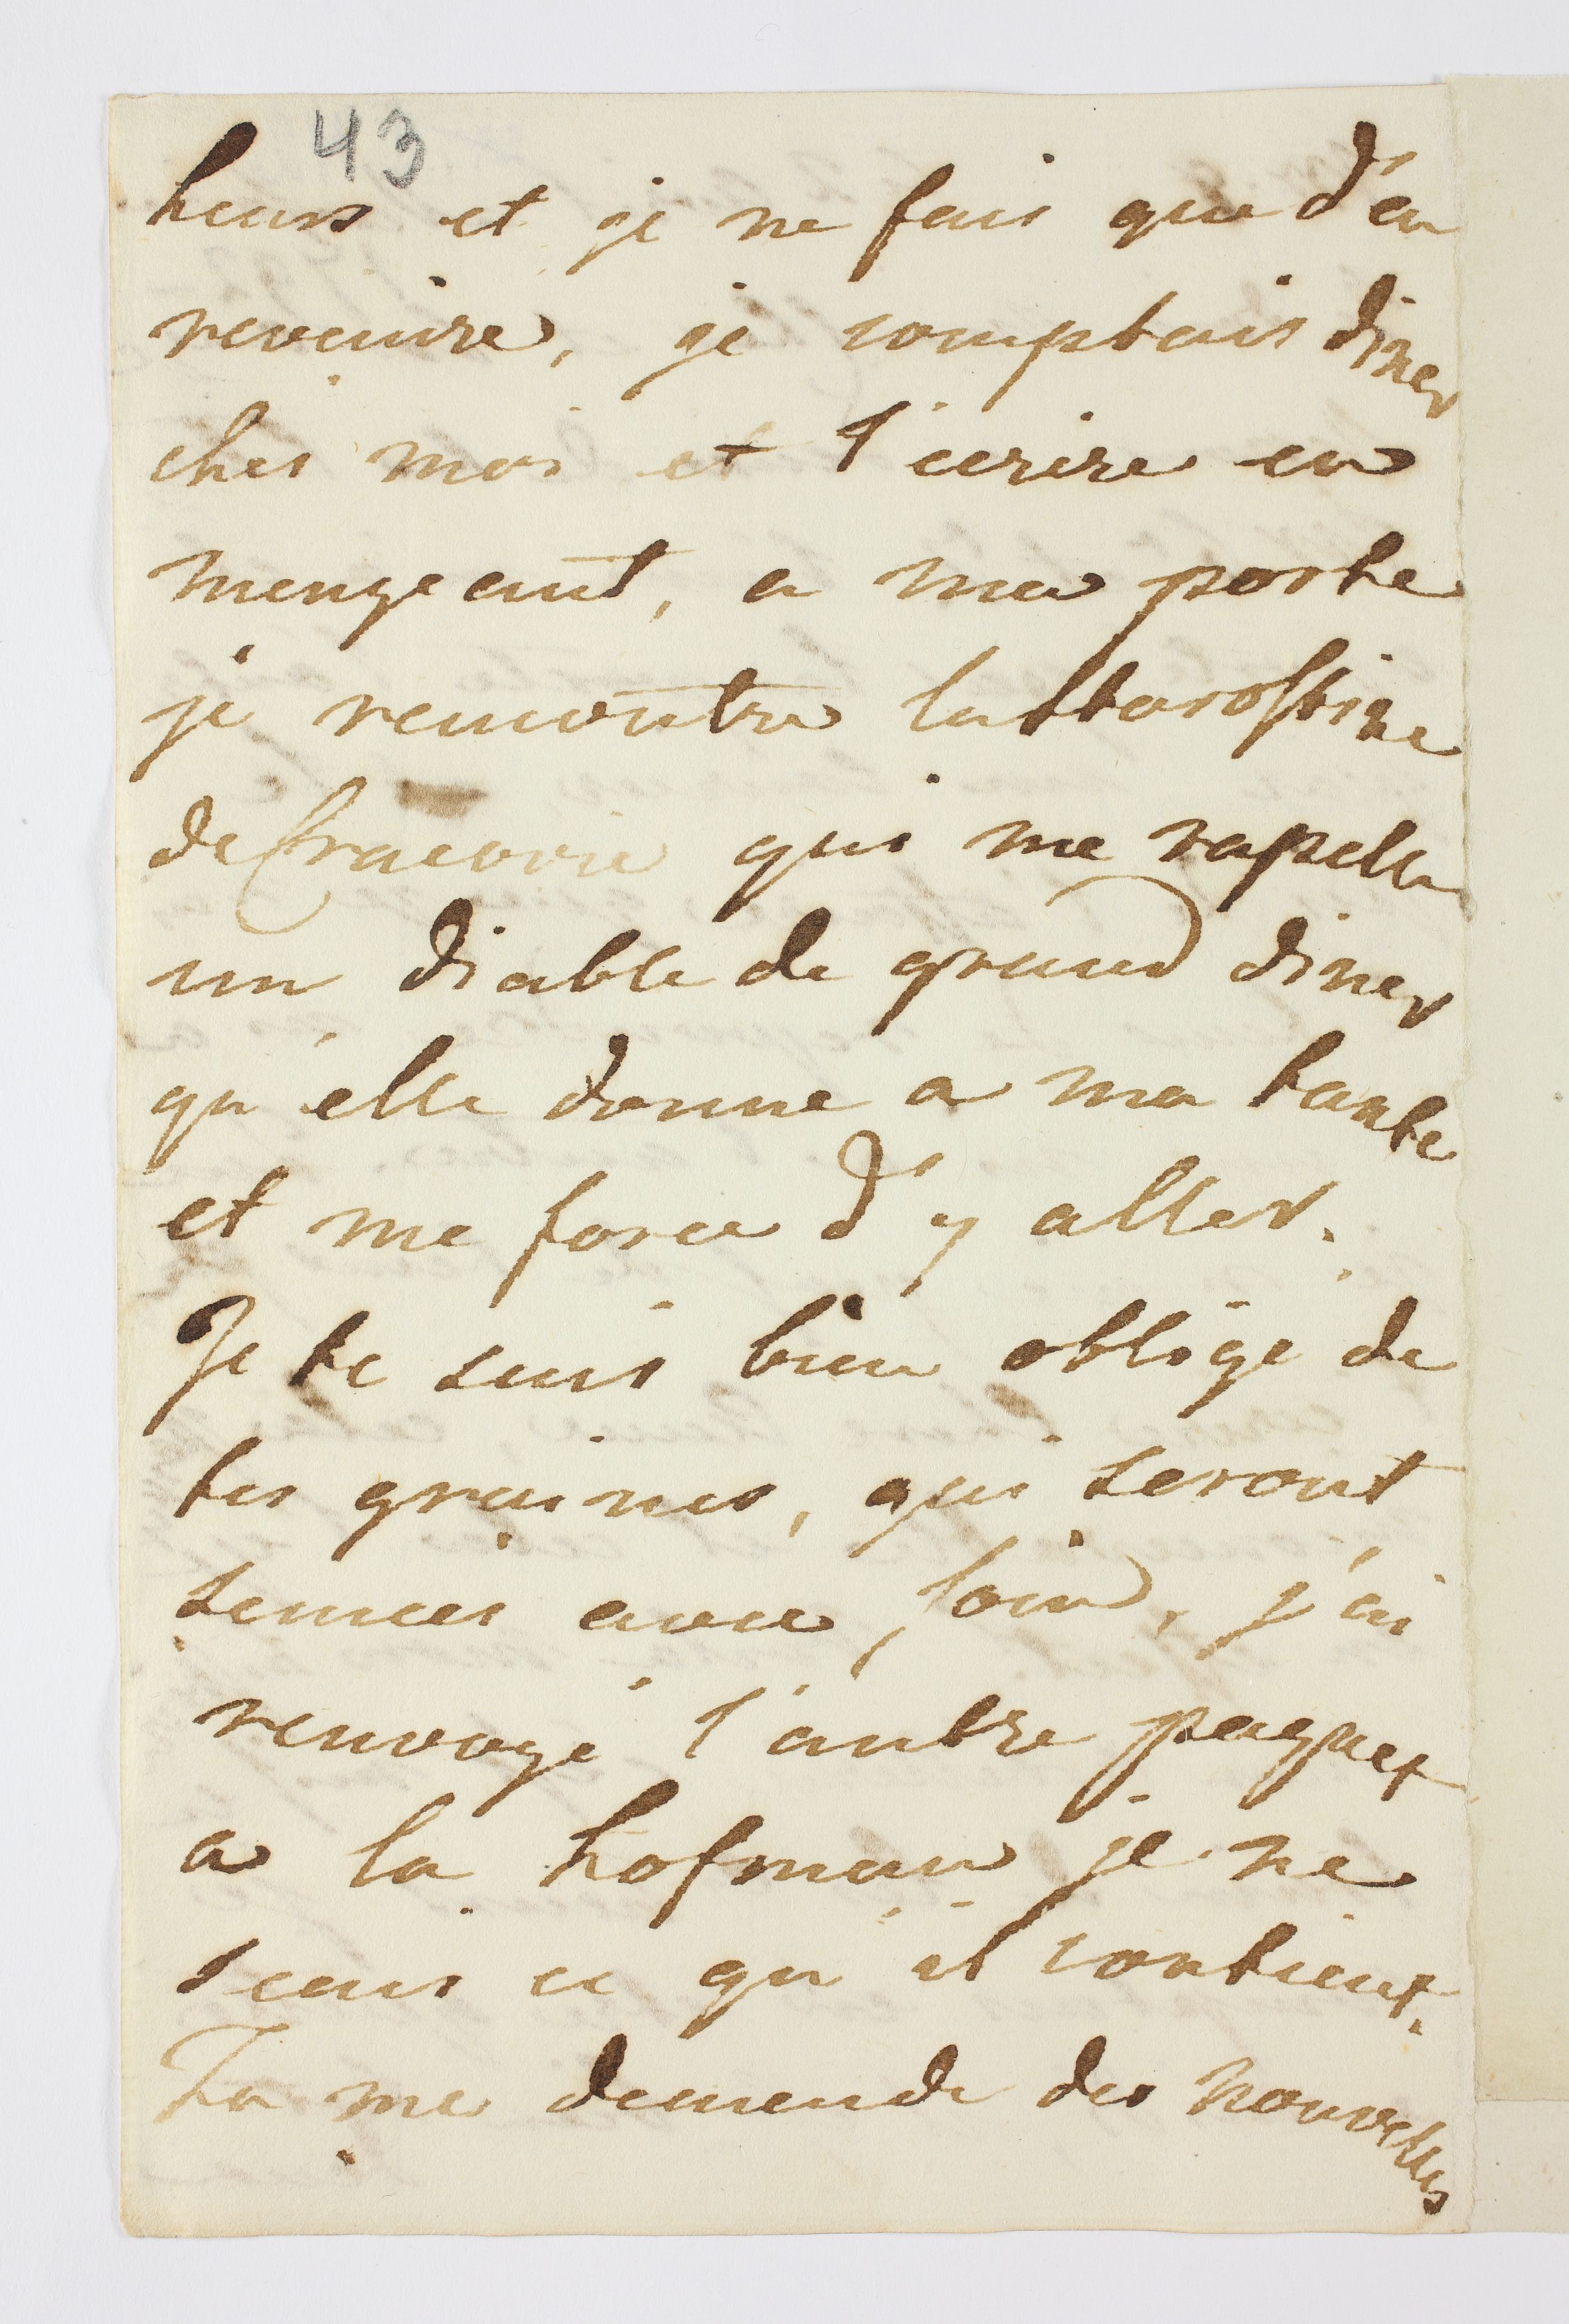 43
heurs et je ne fais que d'en
revenire, je comptais diner
ches moi et t'ecrire en
mengeant, a ma porte
je rencontre la Starostine
de Cracovie qui me rapelle
un diable de grand diner
qu'elle donne a ma tante
et me force d'y aller.
Je te suis bien obligé de
tes graines, qui seront
semées avec soin, j'ai
renvoyé l'autre paquet
a la hofman je ne
scais ce qu'il contient.
Tu me demende des nouvelles